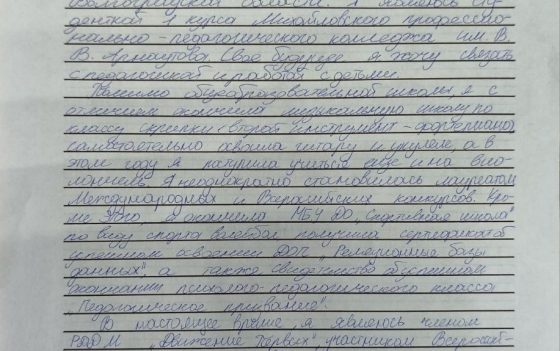 Волгоградской области. Я являюсь сту-
денткой 1 курса Михайловского профессио-
нально-педагогического колледжа им. В.
В. Арнаутова. Свое будущее я хочу связать
с педагогикой и работой с детьми.
Помимо общеобразовательной школы, я с
отличием окончила музыкальную школу по
классу скрипки (второй инструмент - фортепиано),
самостоятельно освоила гитару и укулеле, а в
этом году я решила учиться еще и на вио-
лончель. Я неоднократно становилась лауреатом
Международных и Всероссийских конкурсов. Кро-
ме этого я окончила МБУ ДО "Спортивная школа"
по виду спорта волейбол, получила сертификат об
успешном освоении ДОП "Реляционные базы
данных", а также свидетельство об успешном
окончании психолого-педагогического класса
"Педагогическое призвание".
В настоящее время, я являюсь членом
РДДМ "Движение Первых", участником Всероссий-